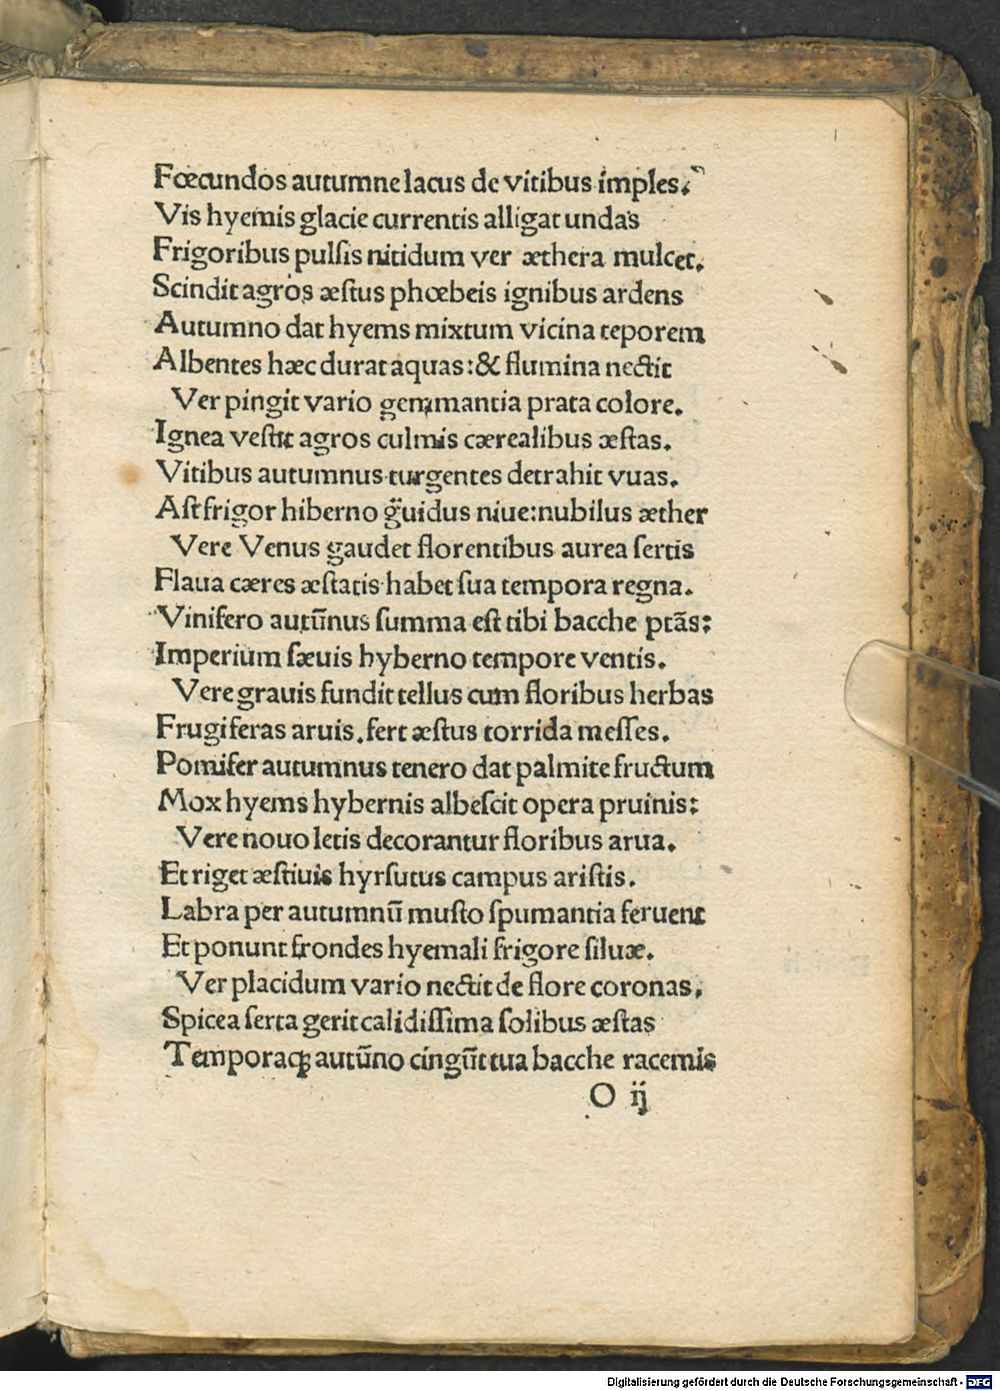 Fœcundos autumne lacus de vitibus imples.
Vis hyemis glacie currentis alligat undas
Frigoribus pulſis nitidum ver æthera mulcet.
Scindit agros æſtus phœbeis ignibus ardens
Autumno dat hyems mixtum vicina teporem
Albentes hæc durat aquas:& flumina nectit
Ver pingit vario gemmantia prata colore.
Ignea veſtit agros culmis cærealibus æſtas.
Vitibus autumnus turgentes detrahit vuas.
Aſt frigor hiberno g̈uidus niue:nubilus æther
Vere Venus gaudet florentibus aurea ſertis
Flaua cæres æſtatis habet ſua tempora regna.
Vinifero autūnus ſumma eſt tibi bacche ptãs:
Imperium ſæuis hyberno tempore ventis.
Vere grauis fundit tellus cum floribus herbas
Frugiferas aruis.fert æſtus torrida meſſes.
Pomifer autumnus tenero dat palmite fructum
Mox hyems hybernis albeſcit opera pruinis:
Vere nouo letis decorantur floribus arua.
Et riget æſtiuis hyrſutus campus ariſtis.
Labra per autumnū muſto ſpumantia feruent
Et ponunt frondes hyemali frigore ſiluæ.
Ver placidum vario nectit de flore coronas.
Spicea ſerta gerit calidiſſima ſolibus æſtas
Temporaqꝫ autūno cingūt tua bacche racemis
O ij
Digitalisierung gefördert durch die Deutsche Forschungsgemeinschaft - DFG